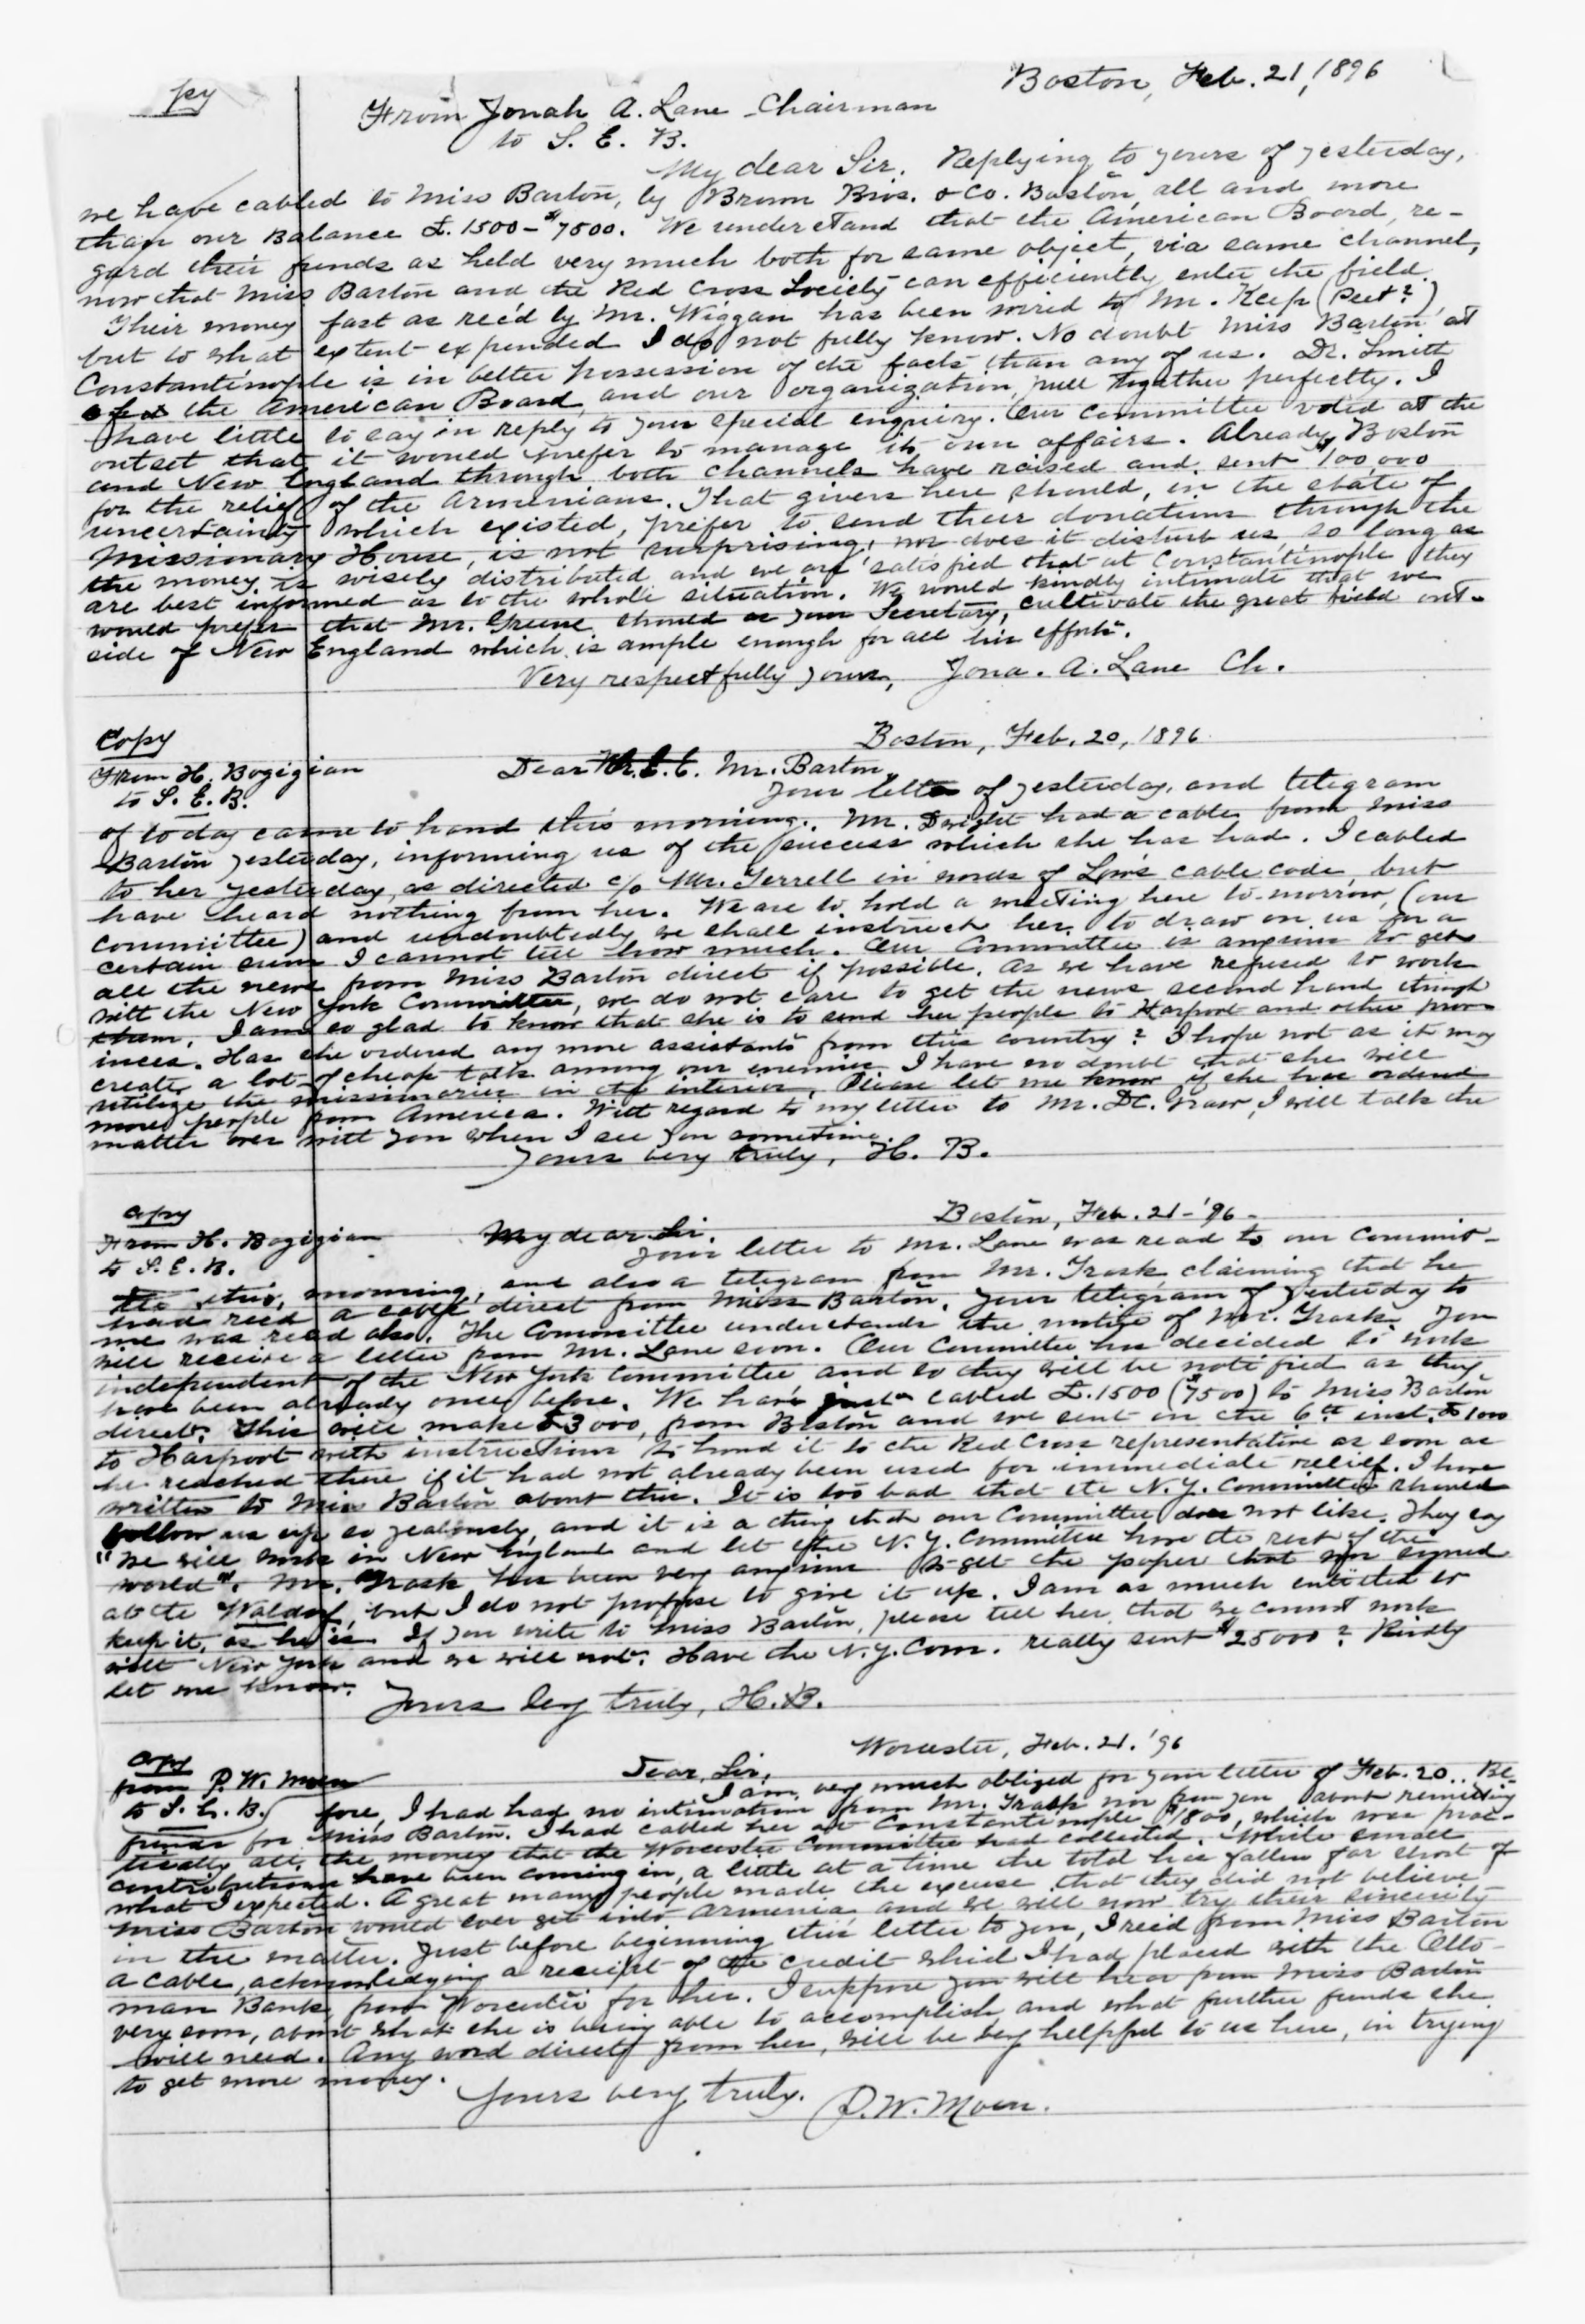 py
Boston, Feb. 21, 1896
From Jonah A. Lane - Chairman
to S. E. B.
My dear Sir. Replying to yours of yesterday,
we have cabled to Miss Barton, by Brown Bros. & Co. Boston, all and more
than our Balance £. 1500 - $7500. We understand that the American Board, re-
gard their funds as held very much both for same object, via same channel,
now that Miss Barton and the Red Cross Society can efficiently enter the field.
Their money fast as rec'd by Mr. Wiggan has been wired to Mr. Keep (Peet?)
but to what extent expended I do not fully know. No doubt Miss Barton at
Constantinople is in better possession of the facts than any of us. Dr. Smith
of the American Board, and our organization, pull together perfectly. I
have little to say in reply to your special enquiry. Our Committee voted at the
outset that it would prefer to manage its own affairs. Already Boston
and New England through both channels have raised and sent $100,000
for the relief of the Armenians. That givers here should, in the state of
uncertainty which existed, prefer to send their donations through the
Missionary House, is not surprising, nor does it disturb us, so long as
the money is wisely distributed, and we are satisfied that at Constantinople they
are best informed as to the whole situation. We would kindly intimate that we
would prefer that Mr. Greene should as your Secretary, cultivate the great field out-
side of New England which is ample enough for all his efforts.
Very respectfully yours, Jona. A. Lane Ch.
Copy
Boston, Feb. 20, 1896.
From H. Bogigian
to S. E. B.
Dear Mr. Barton,
Your letter of yesterday, and telegram
of today came to hand this morning. Mr. Dwight had a cable from Miss
Barton yesterday, informing us of the success which she has had. I cabled
to her yesterday, as directed c/o Mr. Terrell in words of Low's cable code, but
have heard nothing from her. We are to hold a meeting here to-morrow, (our
committee) and undoubtedly we shall instruct her to draw on us for a
certain sum I cannot tell how much. Our Committee is anxious to get
all the news from Miss Barton direct if possible. As we have refused to work
with the New York Committee, we do not care to get the news second hand through
them. I am so glad to know that she is to send her people to Harpoot and other prov-
inces. Has she ordered any more assistants from this country? I hope not as it may
create a lot of cheap talk among our enemies. I have no doubt that she will
utilize the missionaries in the interior. Please let me know if she has ordered
more people from America. With regard to my letter to Mr. I will talk the
matter over with you when I see you sometime.
Yours very truly, H. B.
Copy
Boston, Feb. 21 - '96 -
From H. Bogigian
to S. E. B.
My dear Sir.
Your letter to Mr. Lane was read to our Commit-
tee this morning, and also a telegram from Mr. Trask claiming that he
had rec'd a cable direct from Miss Barton. Your telegram of yesterday to
me was read also. The Committee understands the motive of Mr. Trask. You
will receive a letter from Mr. Lane soon. Our Committee has decided to work
independent of the New York Committee and so they will be notified as they
have been already once before. We have just cabled £. 1500 ($7500) to Miss Barton
direct. This will make £3000, from Boston and we sent on the 6th inst.
to Harpoot with instructions to hand it to the Red Cross representative as soon as
he reached there if it had not already been used for immediate relief. I have
written to Miss Barton about this. It is too bad that the N.Y. Committee should
follow us up so zealously, and it is a thing that our Committee does not like. They say
"We will work in New England and let the N.Y. Committee have the rest of the
world". Mr. Trask has been very anxious to get the paper that you signed
at the Waldorf, but I do not propose to give it up. I am as much entitled to
keep it, as he is. If you write to Miss Barton, please tell her that we cannot work
with New York and we will not. Have the N.Y. Com. really sent $25000? Kindly
let me know.
Yours very truly, H.B.
Copy
Worcester, Feb. 21. '96
from P. W. Moen
to S. E. B.
Dear Sir,
I am very much obliged for your letter of Feb. 20. Be-
fore, I had had no intimation from Mr. Trask nor from you about remitting
funds for Miss Barton. I had cabled her at Constantinople $1800, which was prac-
tically all the money that the Worcester Committee had collected. While small
contributions have been coming in, a little at a time the total has fallen far short of
what I expected. A great many people made the excuse that they did not believe
Miss Barton would ever get into Armenia and we will now try their sincerity
in the matter. Just before beginning this letter to you, I rec'd from Miss Barton
a cable, acknowledging a receipt of the credit which I had placed with the Otto-
man Bank from Worcester for her. I suppose you will hear from Miss Barton
very soon, about what she is being able to accomplish and what further funds she
will need. Any word direct from her, will be very helpful to us here, in trying
to get more money.
Yours very truly. P. W. Moen.